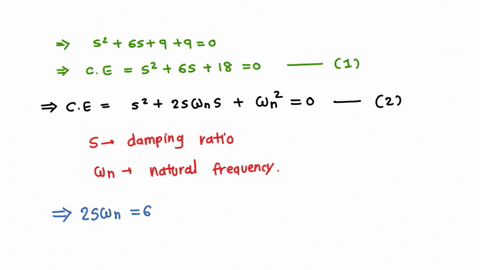 ⇒ S² + 6S + 9 + 9 = 0
⇒ C.E = S² + 6S + 18 = 0 —— (1)
⇒ C.E = S² + 2SωnS + ωn² = 0 — (2)
S → damping ratio
ωn → natural frequency.
⇒ 2Sωn = 6